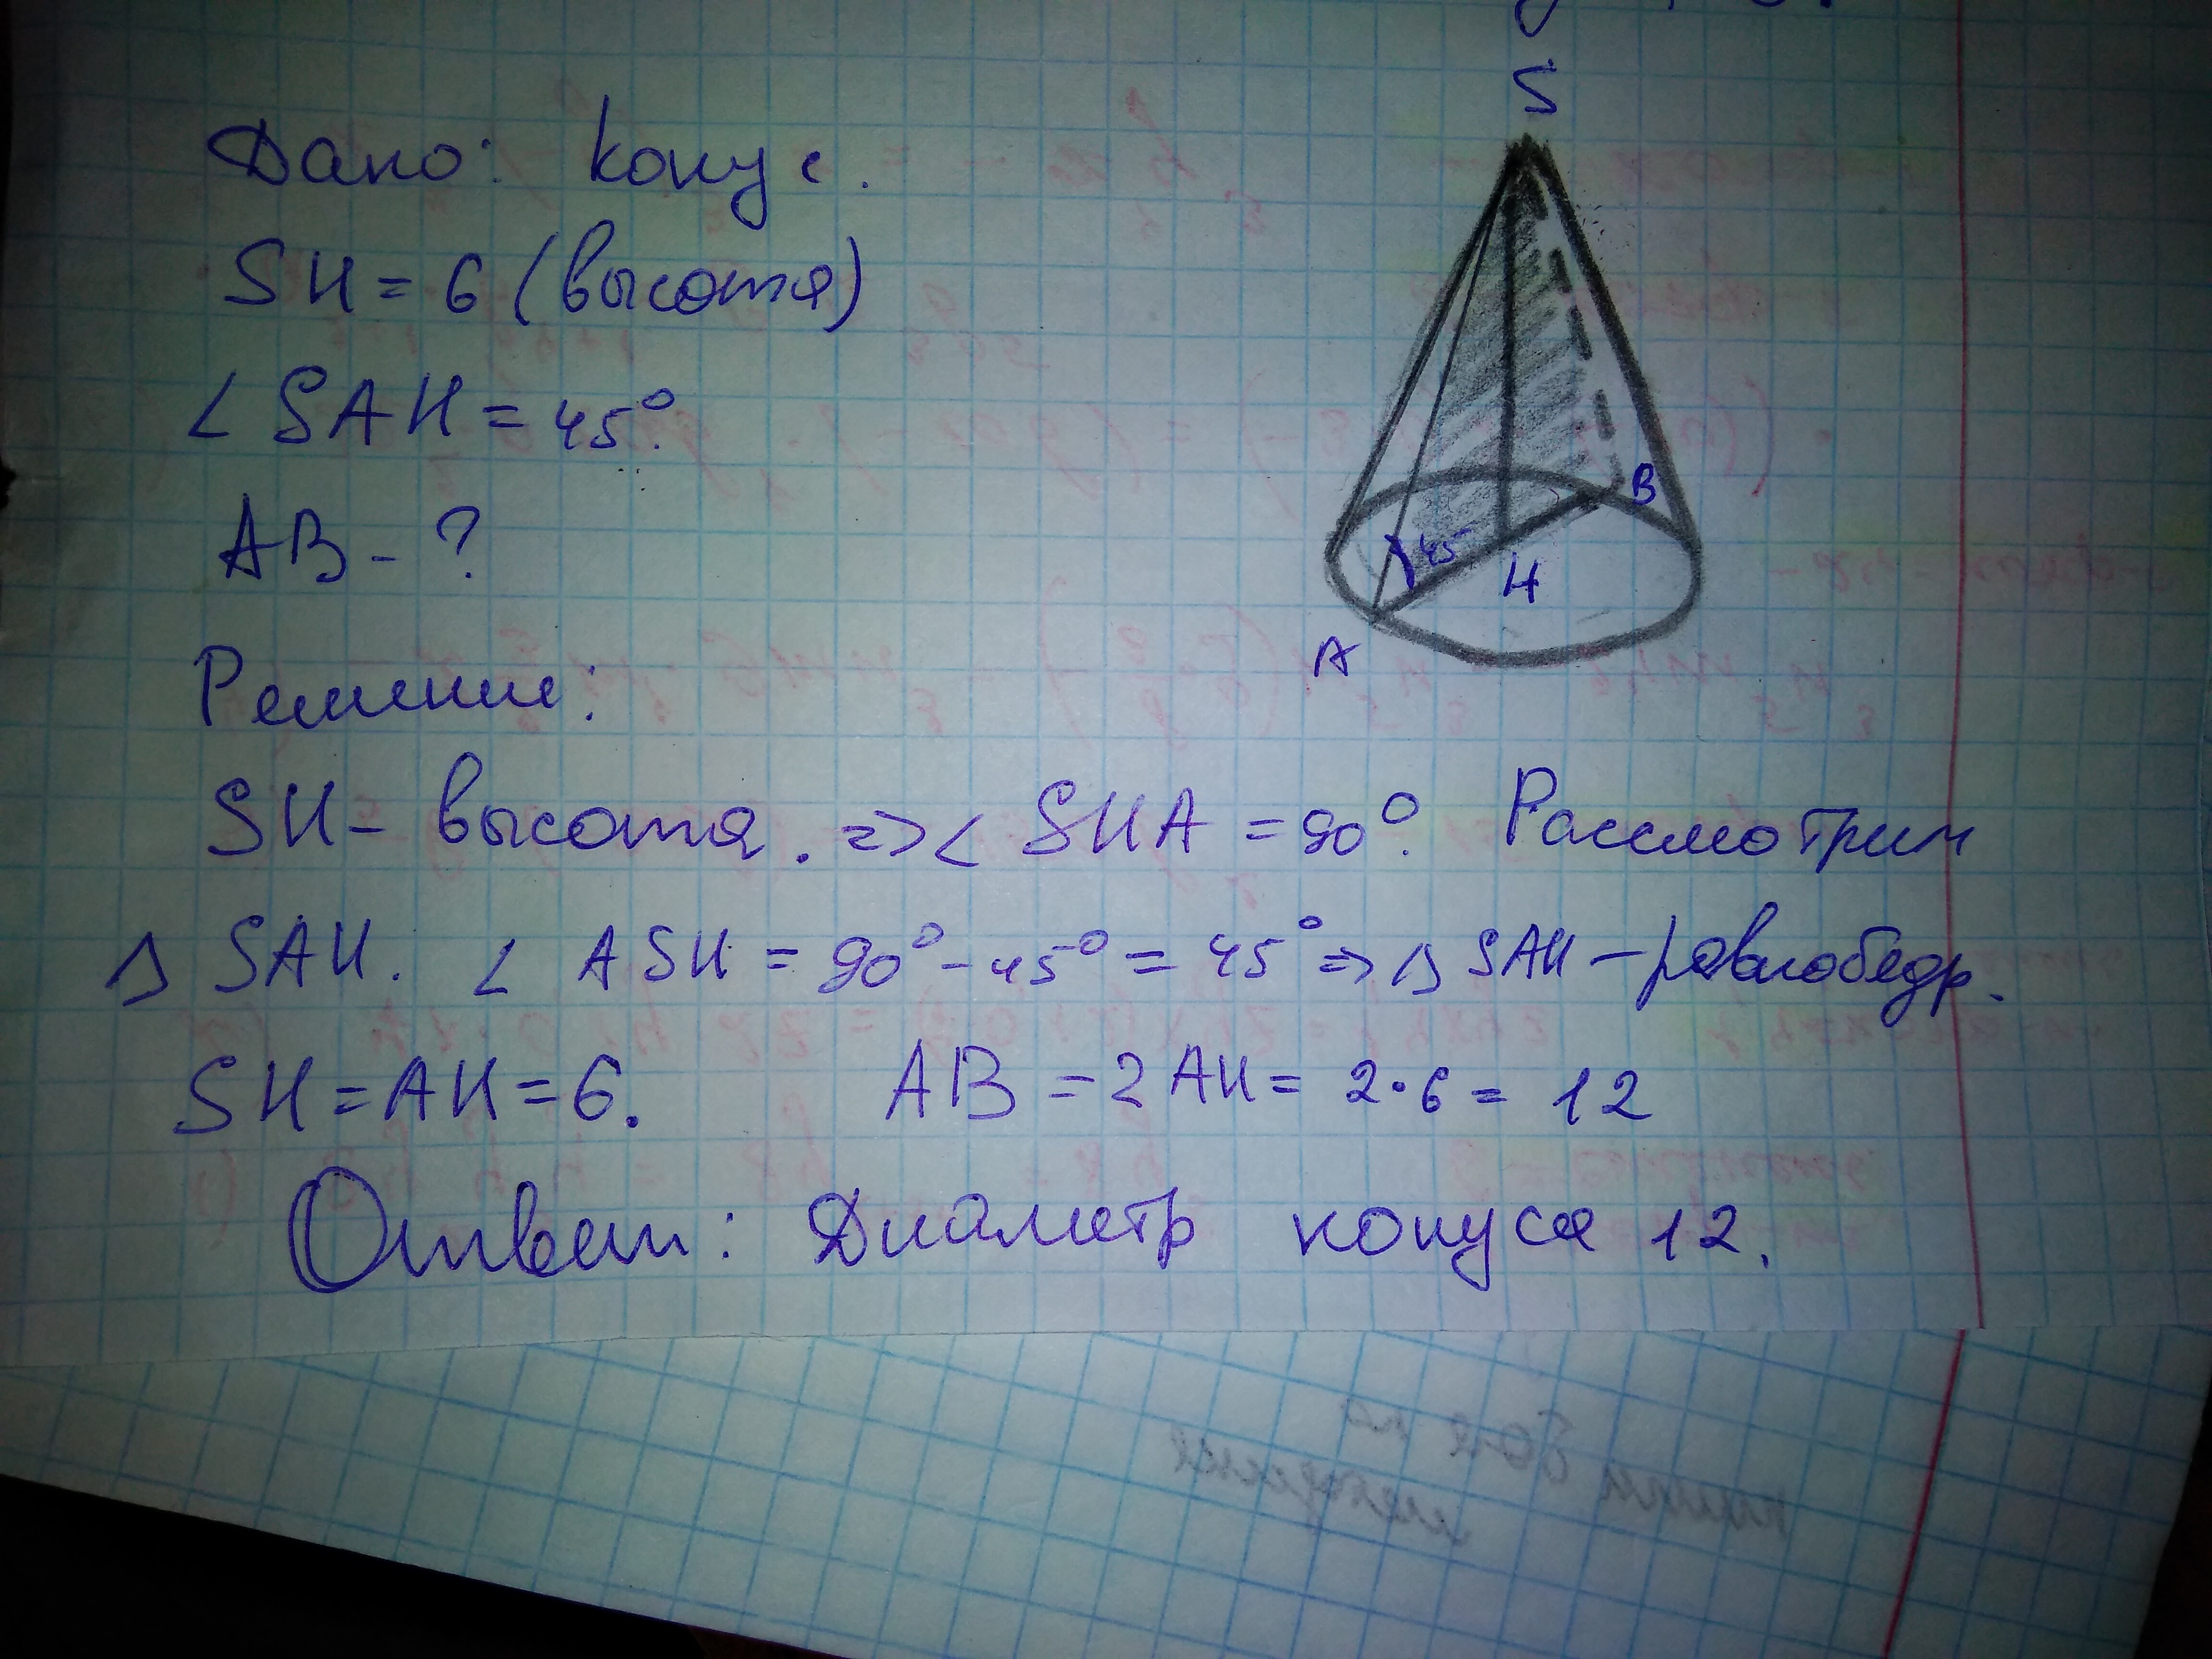 S
Дано: конус.
SH = 6 (высота)
∠ SAH = 45°.
AB - ?
B
45
H
A
Решение:
SH - высота. => ∠ SHA = 90°. Рассмотрим
Δ SAH. ∠ ASH = 90° - 45° = 45° => Δ SAH - равнобедр.
SH = AH = 6. AB = 2 AH = 2·6 = 12
Ответ: Диаметр конуса 12.